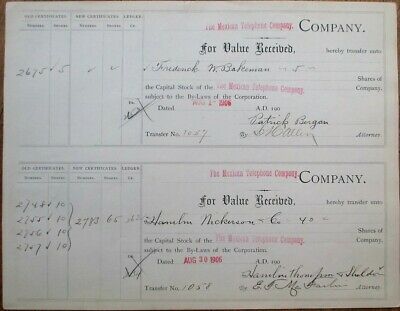 OLD CERTIFICATES NEW CERTIFICATES LEDGER
NUMBERS. SHARES. NUMBERS. SHARES. CR.
The Mexican Telephone Company. COMPANY.
For Value Received, hereby transfer unto
2675 5 Frederick W. Bakeman 5 Shares of
the Capital Stock of the The Mexican Telephone Company.
subject to the By-Laws of the Corporation.
DR.
Dated AUG 1906 A.D. 190
Patrick Bergan
Transfer No. 1057 By Attorney.
OLD CERTIFICATES NEW CERTIFICATES LEDGER
NUMBERS. SHARES. NUMBERS. SHARES. CR.
The Mexican Telephone Company. COMPANY.
For Value Received, hereby transfer unto
10
10 2783 65 Hamlin Nickerson & Co 40 Shares of
10 the Capital Stock of the The Mexican Telephone Company.
10 subject to the By-Laws of the Corporation.
DR.
Dated AUG 30 1906 A.D. 190
Transfer No. 1058 By Attorney.